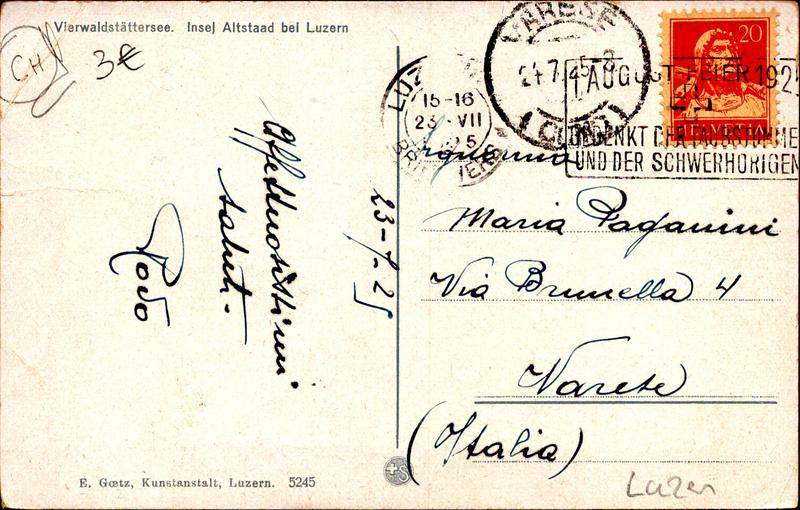 Vierwaldstättersee. Insel Altstaad bei Luzern
CH
3€
Affettuosissimi
saluti.
Rovo
23-7-25
LUZ
15-16
23. VII
BRIEFVERS
VARESE
24.7.25-8
20
HELVETIA
1. AUGUST-FEIER 192
GEDENKT DER TAUBSTUMME
UND DER SCHWERHÖRIGEN
Signorina
Maria Paganini
Via Brunella 4
Varese
(Italia)
E. Gœtz, Kunstanstalt, Luzern. 5245
S
Luzern